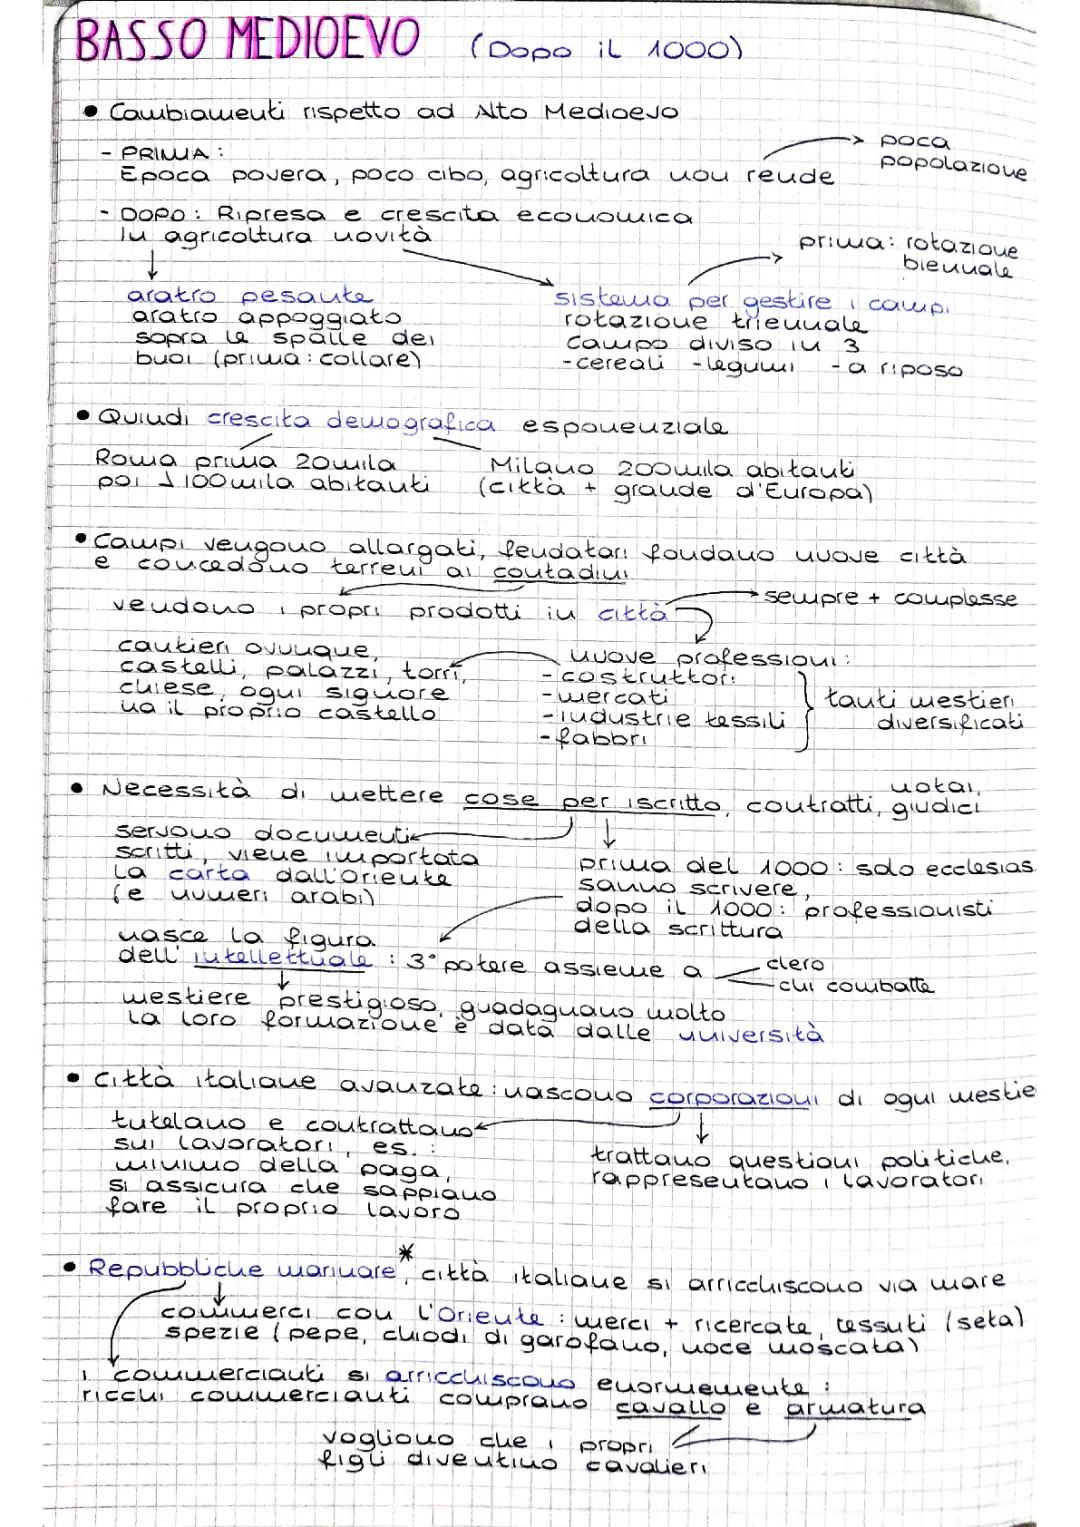 BASSO MEDIOEVO (Dopo il 1000)
• Cambiamenti rispetto ad Alto Medioevo
- PRIMA :
Epoca povera, poco cibo, agricoltura non rende
poca
popolazione
- DOPO : Ripresa e crescita economica
In agricoltura novità
prima : rotazione
biennale
aratro pesante
aratro appoggiato
sopra le spalle dei
buoi (prima : collare)
sistema per gestire i campi
rotazione triennale
campo diviso in 3
-cereali -legumi -a riposo
• Quindi crescita demografica esponenziale
Roma prima 20mila
poi 100mila abitanti
Milano 200mila abitanti
(città + grande d'Europa)
• Campi vengono allargati, feudatari fondano nuove città
e concedono terreni ai contadini
vendono i propri prodotti in città
sempre + complesse
cantieri ovunque,
castelli, palazzi, torri,
chiese, ogni signore
ha il proprio castello
nuove professioni :
-costruttori
-mercati
-industrie tessili
-fabbri
tanti mestieri
diversificati
• Necessità di mettere cose per iscritto, contratti, notai, giudici
servono documenti
scritti, viene importata
la carta dall'Oriente
(e numeri arabi)
prima del 1000 : solo ecclesias
sanno scrivere,
dopo il 1000 : professionisti
della scrittura
nasce la figura
dell' intellettuale : 3° potere assieme a
clero
chi combatte
mestiere prestigioso, guadagnano molto
la loro formazione è data dalle università
• città italiane avanzate : nascono corporazioni di ogni mestie
tutelano e contrattano
sui lavoratori, es. :
minimo della paga,
si assicura che sappiano
fare il proprio lavoro
trattano questioni politiche,
rappresentano i lavoratori
*
• Repubbliche marinare, città italiane si arricchiscono via mare
commerci con l'Oriente : merci + ricercate, tessuti (seta)
spezie (pepe, chiodi di garofano, noce moscata)
i commercianti si arricchiscono enormemente :
ricchi commercianti comprano cavallo e armatura
vogliono che i propri
figli diventino cavalieri